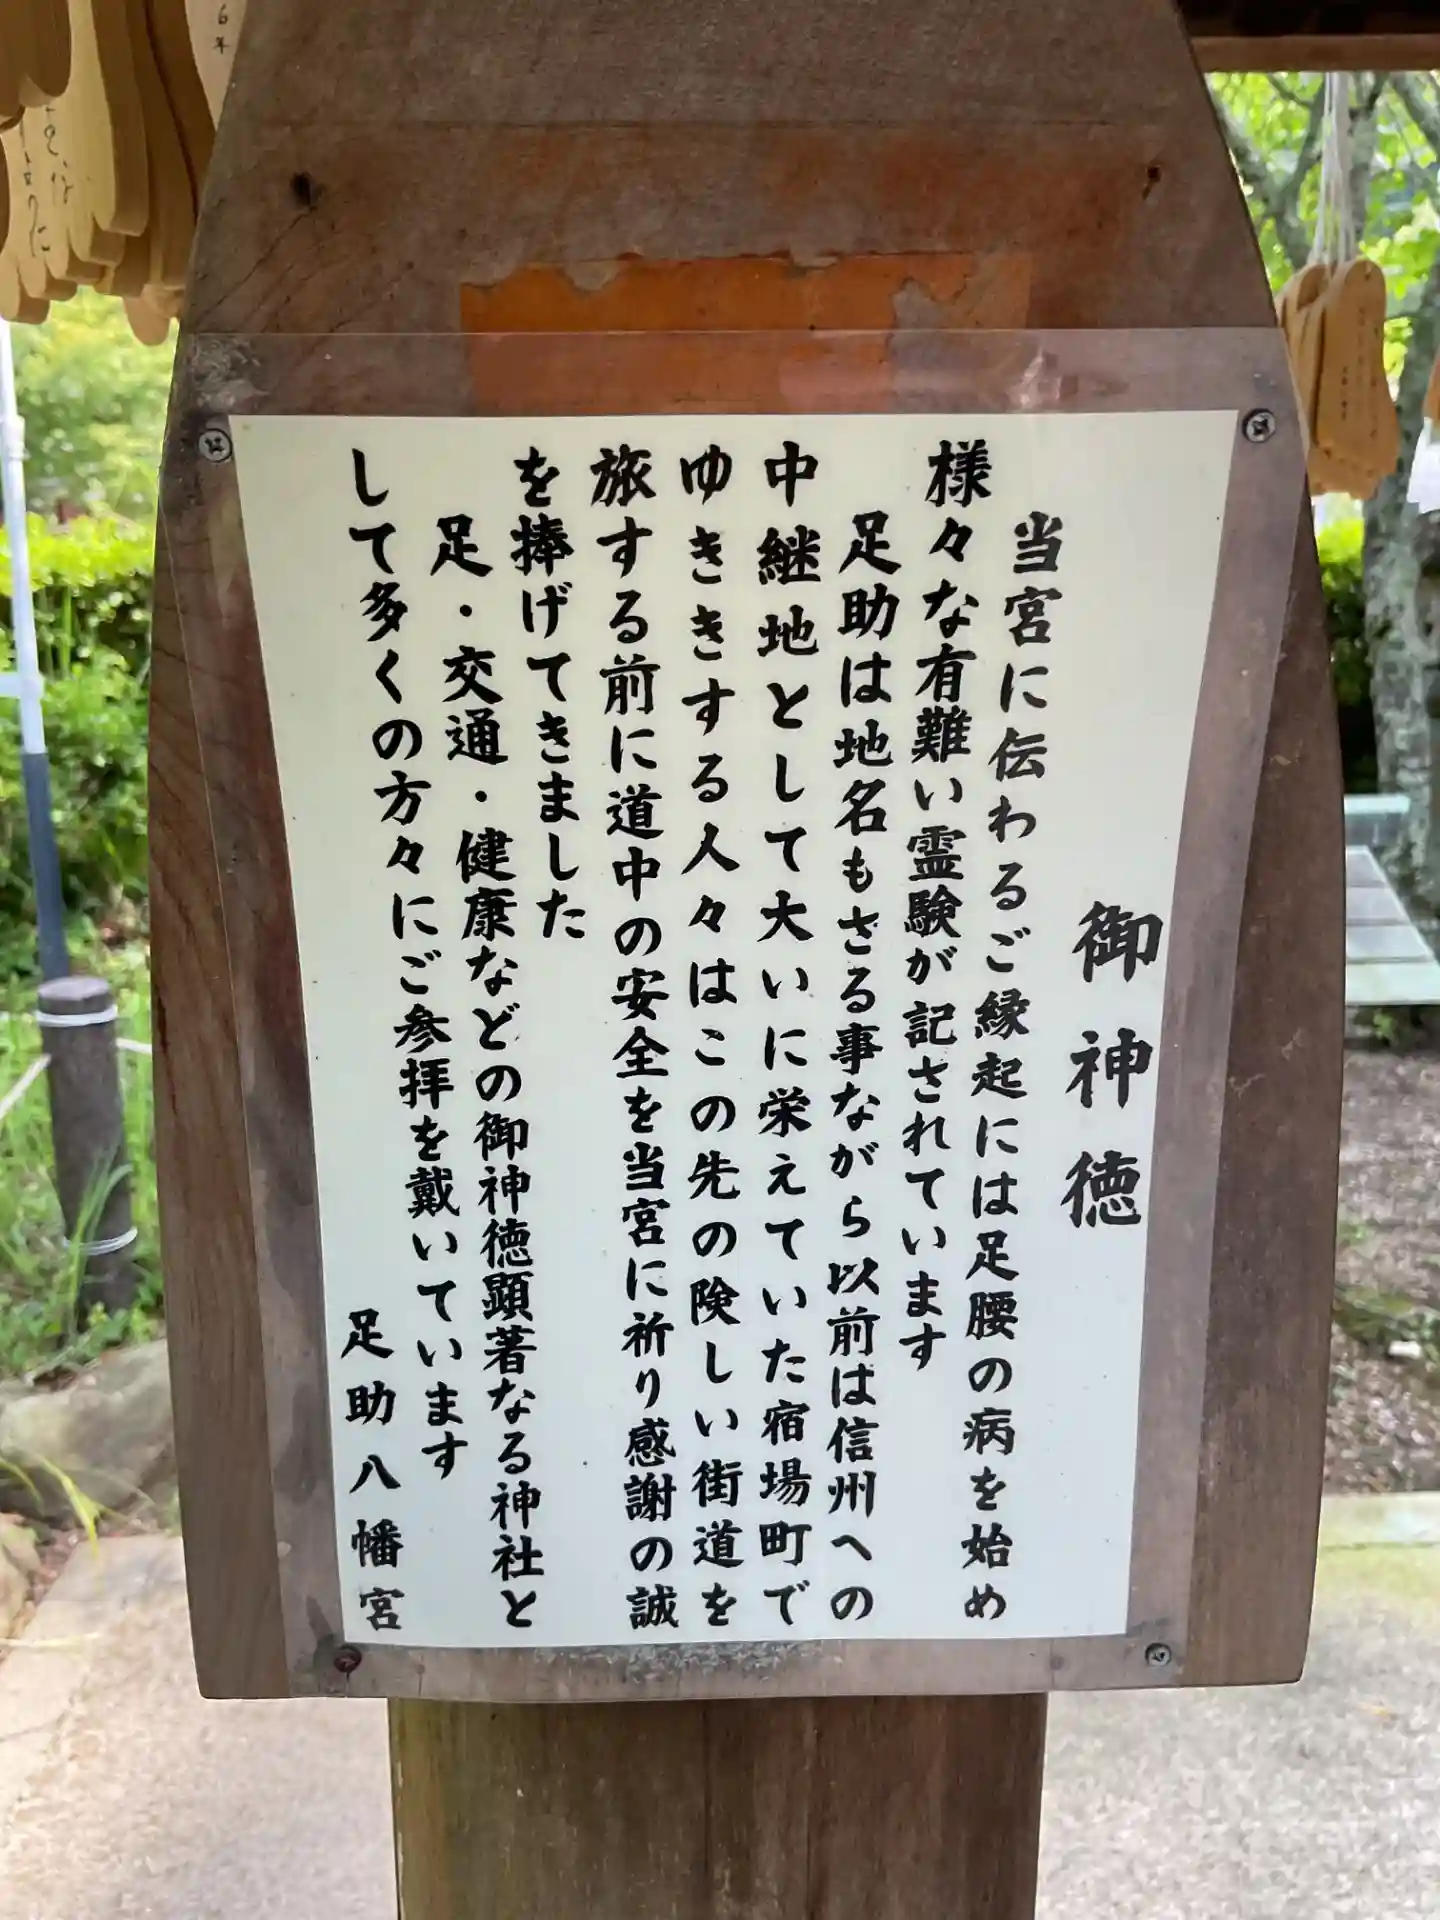 御神徳
当宮に伝わるご縁起には足腰の病を始め
様々な有難い霊験が記されています
足助は地名もさる事ながら以前は信州への
中継地として大いに栄えていた宿場町で
ゆききする人々はこの先の険しい街道を
旅する前に道中の安全を当宮に祈り感謝の誠
を捧げてきました
足・交通・健康などの御神徳顕著なる神社と
して多くの方々にご参拝を戴いています
足助八幡宮
6年